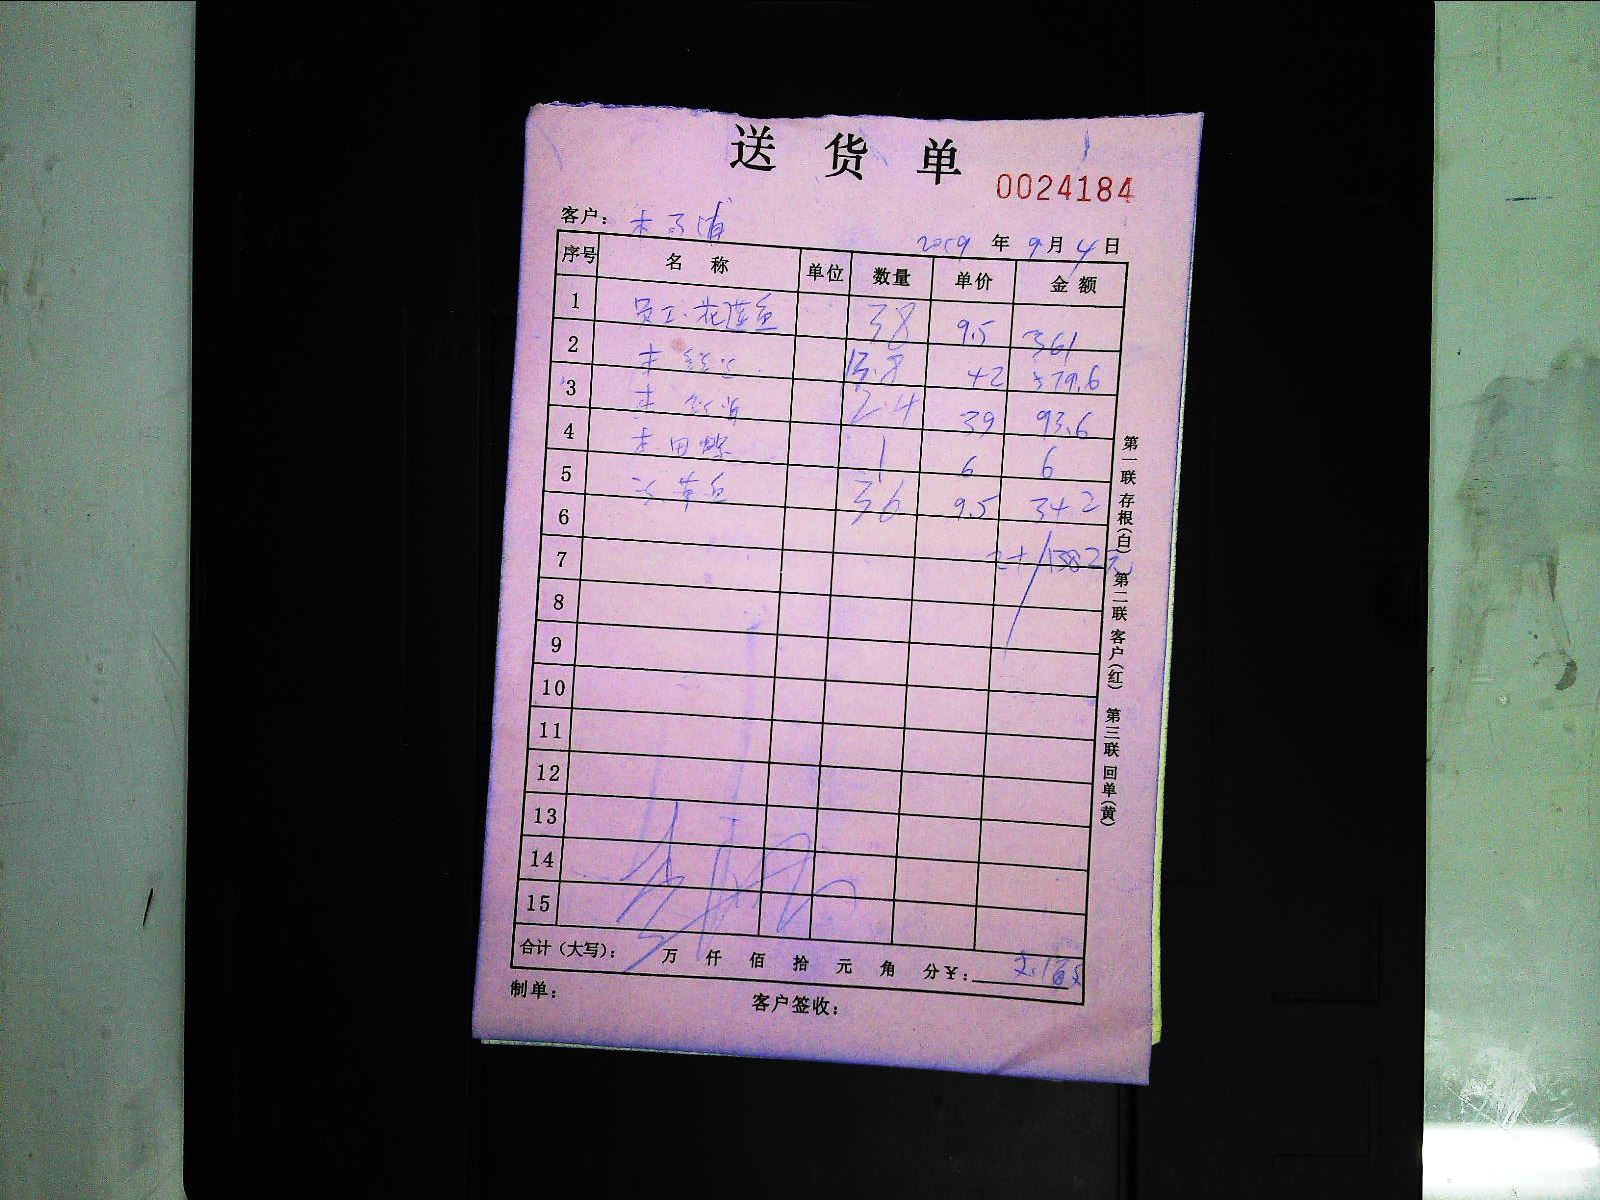 送 货 单
0024184
客户：
2019 年 9 月 4 日
序号 名 称 单位 数量 单价 金 额
1 员工.花莲鱼 38 9.5 361
2 13.8 42 579.6
3 2.4 39 93.6
4 田螺 1 6 6
5 草鱼 36 9.5 342
6
7 1382元
8
9
10
11
12
13
14
15
合计（大写）： 万 仟 佰 拾 元 角 分 ¥：
制单： 客户签收：
第一联 存根(白) 第二联 客户(红) 第三联 回单(黄)